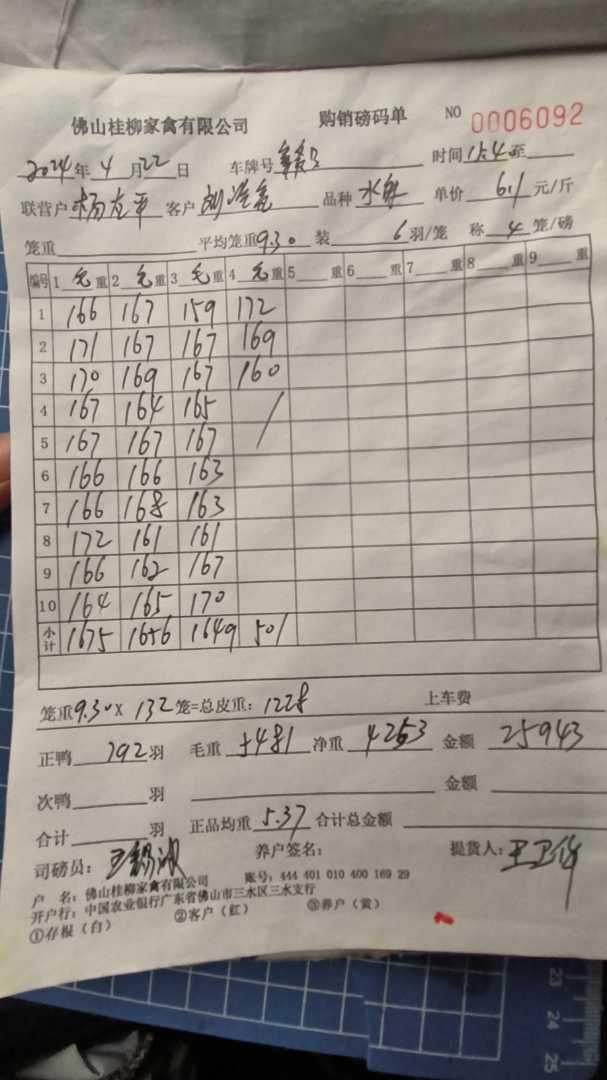 佛山桂柳家禽有限公司 购销磅码单 NO 0006092
2024年 4 月 22 日 车牌号 时间 15.4至
联营户 杨友平 客户 品种 水鸭 单价 6.1 元/斤
笼重 平均笼重9.30 装 6 羽/笼 称 4 笼/磅
编号 1 毛 重 2 毛 重 3 毛 重 4 毛 重 5 重 6 重 7 重 8 重 9 重
1 166 167 159 172
2 171 167 167 169
3 170 169 167 160
4 167 164 165 /
5 167 167 167
6 166 166 163
7 166 168 163
8 172 161 161
9 166 162 167
10 164 165 170
小计 1675 1656 1649 501
笼重9.30X 132 笼=总皮重：1228 上车费
正鸭 792 羽 毛重 5481 净重 4253 金额 25943
次鸭 羽 金额
合计 羽 正品均重 5.37 合计总金额
司磅员： 养户签名： 提货人：王卫华
户 名：佛山桂柳家禽有限公司 账号：444 401 010 400 169 29
开户行：中国农业银行广东省佛山市三水区三水支行
①存根（白） ②客户（红） ③养户（黄）
23
24
25